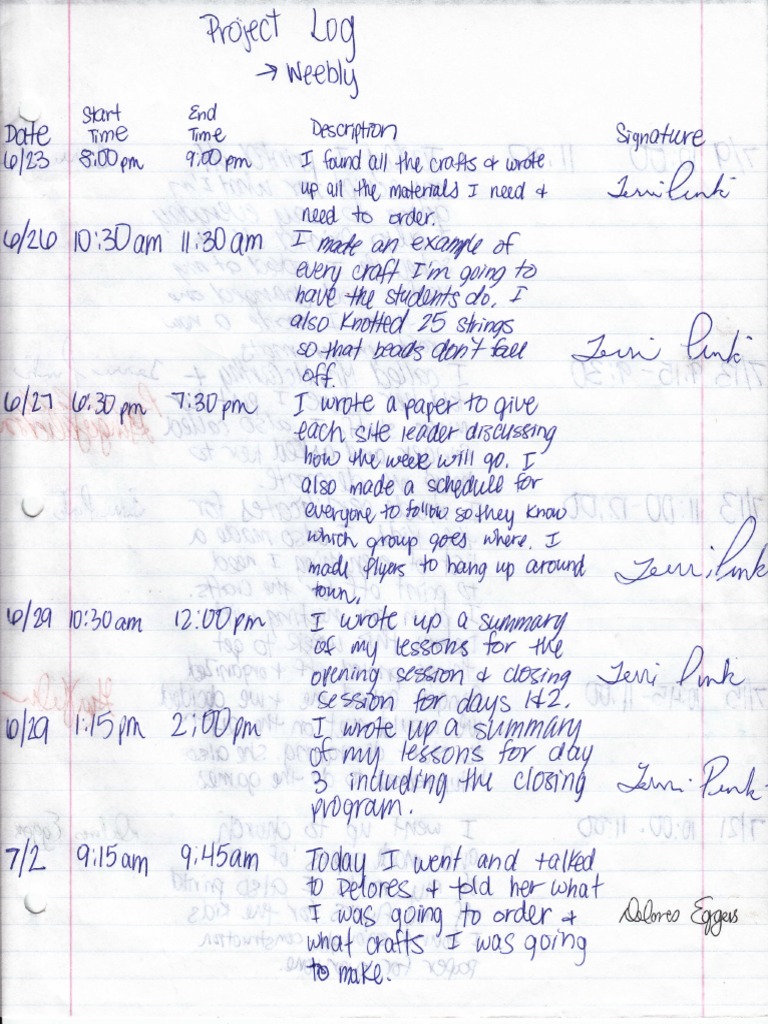 Project Log
→ Weebly
Date Start Time End Time Description Signature
6/23 8:00pm 9:00pm I found all the crafts & wrote Terri Pink
up all the materials I need &
need to order.
6/26 10:30am 11:30am I made an example of
every craft I'm going to
have the students do. I
also knotted 25 strings
so that beads don't fall Terri Pink
off.
6/27 6:30pm 7:30pm I wrote a paper to give
each site leader discussing
how the week will go. I
also made a schedule for
everyone to follow so they know
which group goes where. I
made flyers to hang up around Terri Pink
town.
6/29 10:30am 12:00pm I wrote up a summary
of my lessons for the
opening session & closing Terri Pink
session for days 1&2.
6/29 1:15pm 2:00pm I wrote up a summary
of my lessons for day
3 including the closing Terri Pink
program.
7/2 9:15am 9:45am Today I went and talked
to Delores & told her what
I was going to order & Delores Eggers
what crafts I was going
to make.